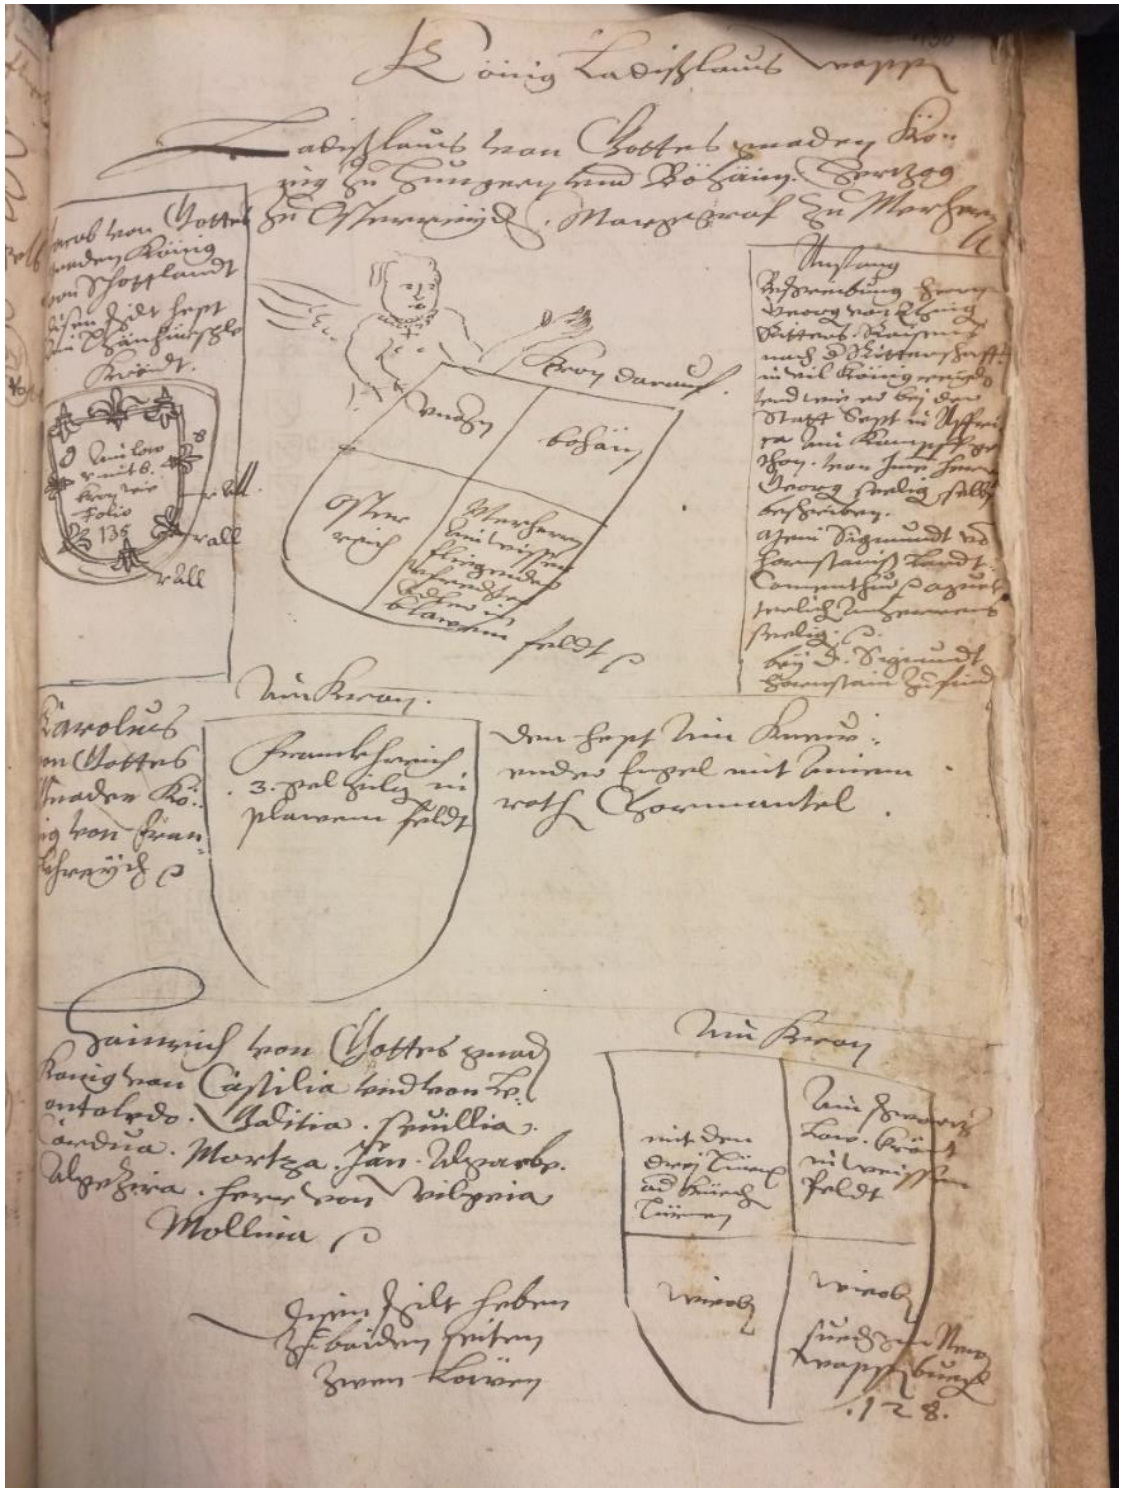 König Ladißlaus wappen
Ladißlaus von Gottes gnaden Kön-
nig zu Hungern und Böhaim. Hertzog
zu Österreÿch. Marggraf zu Merhern
von Gottes
gnaden König
von Schottlandt
disen schilt hept
ain
Ain low
mit
kron wie
Folio
135
rall
rall
rall
Kron darauf.
Ungern
bohäim
Öster
reich
Merhern
ain weisser
fliegender
adler in
blawem feldt
Anfang
Beschreibung herrn
Georg von Ehing
Ritters Raisens
nach der Ritterschafft
in vil Königreych
und wie er bei der
Statt Sept in Affri
ca ain Kampff ge
thon. von jme herrn
Georg seelig selbs
beschriben.
Sigmundt vo
Hornstains Landt
Comenthur
seelig.
beÿ d. Sigmundt
Hornstain zufind
Ain Kron.
Karolus
von Gottes
gnaden Kö-
nig von Fran-
ckhreÿch
Franckhreich
.3. gel gilgen in
plawem feldt
den hept ain Kneuw-
ender Engel mit ainem
roth Chormantel.
Hainrich von Gottes gnaden
Konig von Castilia und von Le-
on toledo. Galitia. Sevillia.
Cordua. Mortza. Jän. Algarbe.
Algezira. herr von
Mollina
Disen schilt heben
zu baiden seiten
zwen Löwen
Ain Kron
mit den
dreÿ
Ain schwartz
Low. krönt
in weissem
feldt
wie ob
wie ob
such im New
wappenbuech
.128.